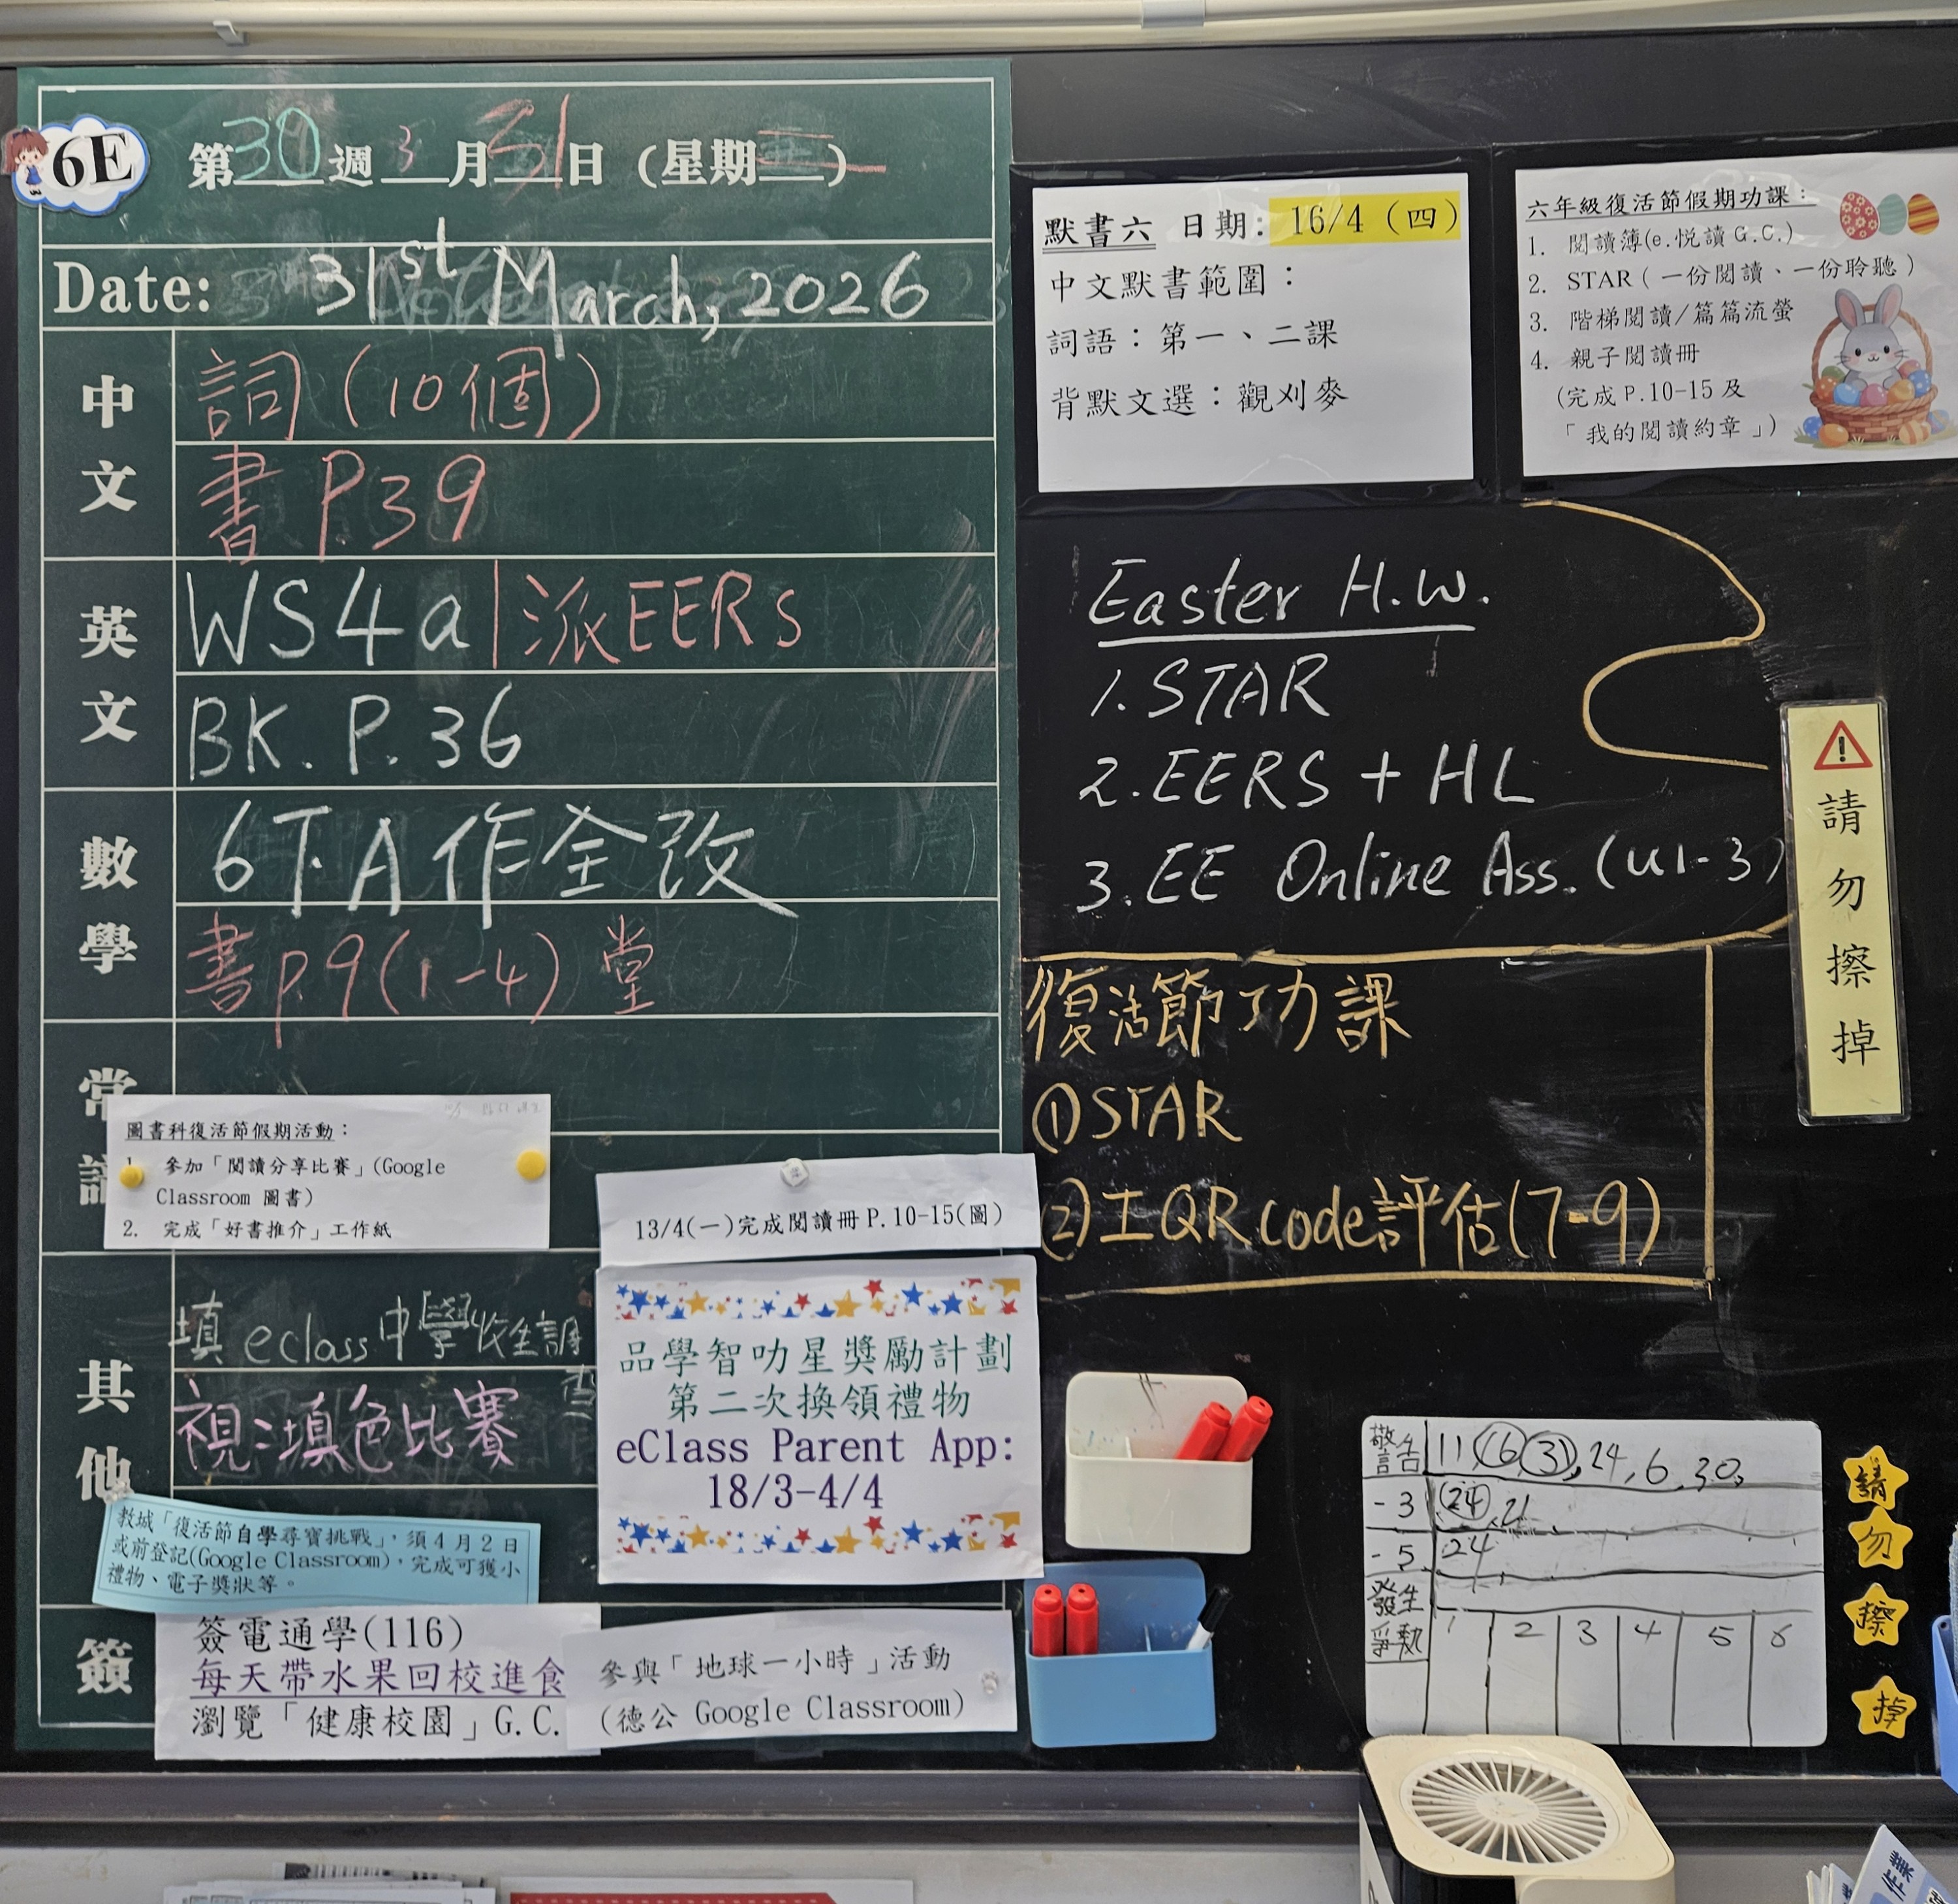 6E
第30週 3月31日 (星期二)
Date: 31st March, 2026
中文
詞 (10個)
書 P.39
英文
WS4a | 派EERs
BK. P. 36
數學
6下A作全改
書P.9(1-4) 堂
常
圖書科復活節假期活動：
1. 參加「閱讀分享比賽」(Google
Classroom 圖書)
2. 完成「好書推介」工作紙
13/4(一)完成閱讀冊 P.10-15(圖)
其他
填 eclass 中學收生調查
視:填色比賽
品學智叻星獎勵計劃
第二次換領禮物
eClass Parent App:
18/3-4/4
教城「復活節自學尋寶挑戰」，須4月2日
或前登記(Google Classroom)，完成可獲小
禮物、電子獎狀等。
簽
簽電通學(116)
每天帶水果回校進食
瀏覽「健康校園」G.C.
參與「地球一小時」活動
(德公 Google Classroom)
默書六 日期: 16/4 (四)
中文默書範圍：
詞語：第一、二課
背默文選：觀刈麥
六年級復活節假期功課：
1. 閱讀簿(e.悦讀 G.C.)
2. STAR（一份閱讀、一份聆聽）
3. 階梯閱讀/篇篇流螢
4. 親子閱讀冊
(完成 P.10-15 及
「我的閱讀約章」)
Easter H.W.
1. STAR
2. EERS + HL
3. EE Online Ass. (U1-3)
請勿擦掉
復活節功課
① STAR
② 工QR code評估(7-9)
警告 11, 16, 31, 24, 6, 30,
-3 24, 21
-5 24,
發生爭執 1 2 3 4 5 6
請勿擦掉
作業